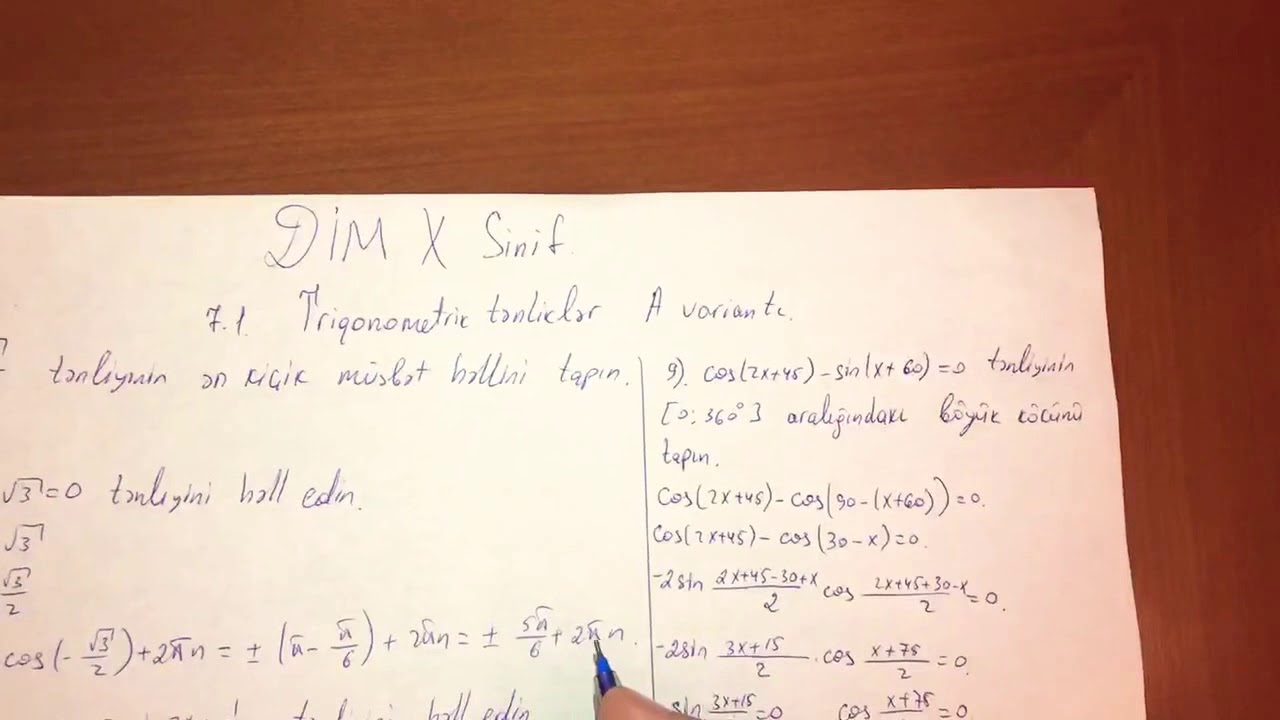 DİM X Sinif.
7.1. Triqonometrik tənliklər A variantı.
tənliyinin ən kiçik müsbət həllini tapın.
√3=0 tənliyini həll edin.
√3
√3/2
cos(-√3/2)+2πn = ±(π-π/6)+2πn = ±5π/6+2πn.
tənliyini həll edin
9). cos(2x+45)-sin(x+60)=0 tənliyinin
[0;360°] aralığındakı böyük kökünü
tapın.
cos(2x+45)-cos(90-(x+60))=0.
cos(2x+45)-cos(30-x)=0.
-2sin (2x+45-30+x)/2 cos (2x+45+30-x)/2=0.
-2sin (3x+15)/2 · cos (x+75)/2=0.
sin (3x+15)/2=0 cos (x+75)/2=0